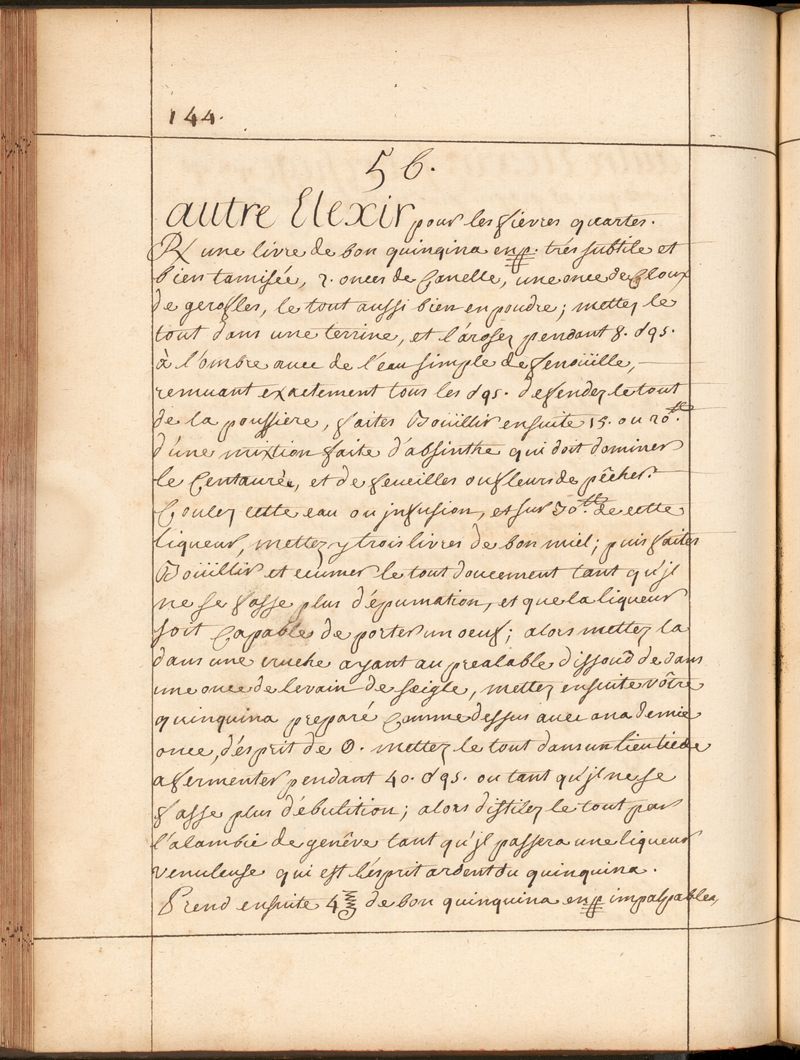 144.
56.
autre Elexir pour les fièvres quartes.
℞ une livre de bon quinqina en p. trés subtile et
bien tamisée, 2. onces de Canelle, une once de Cloux
de gerofles, le tout aussi bien en poudre; mettez le
tout dans une terrine, et l'árosez pendant 8. d95.
à l'ombre avec de l'eau simple de fenoüille,
remuant exactement tous les d95. defendez le tout
de la poussiere, faites Boüillir ensuite 15. ou 20. ℔
d'une mixtion faite d'absinthe qui doit dominer
le Centaurée, et de feueilles ou fleurs de pêcher.
Coulez cette eau ou jnfusion, et sur 30. ℔ de cette
liqueur, mettez y trois livres de bon miel; puis faites
Boüillir et ecumer le tout doucement tant qu'jl
ne se fasse plus d'épumation, et que la liqueur
soit Capable de porter un oeuf; alors mettez la
dans une cruche ayant au prealable dissoud dedans
une once de levain de seigle, mettez ensuite vôtre
quinquina preparé Comme dessus avec ana demie
once, d'ésprit de 0. mettez le tout dans un lieu tiede
a fermenter pendant 40. d95. ou tant qu'jl ne se
fasse plus d'ébulition; alors distilez le tout par
l'alambic de genêve tant qu'jl passera une liqueur
venuleuse qui est l'ésprit ardent du quinquina.
Prend ensuite 4 ℥ de bon quinquina en p impalpables,